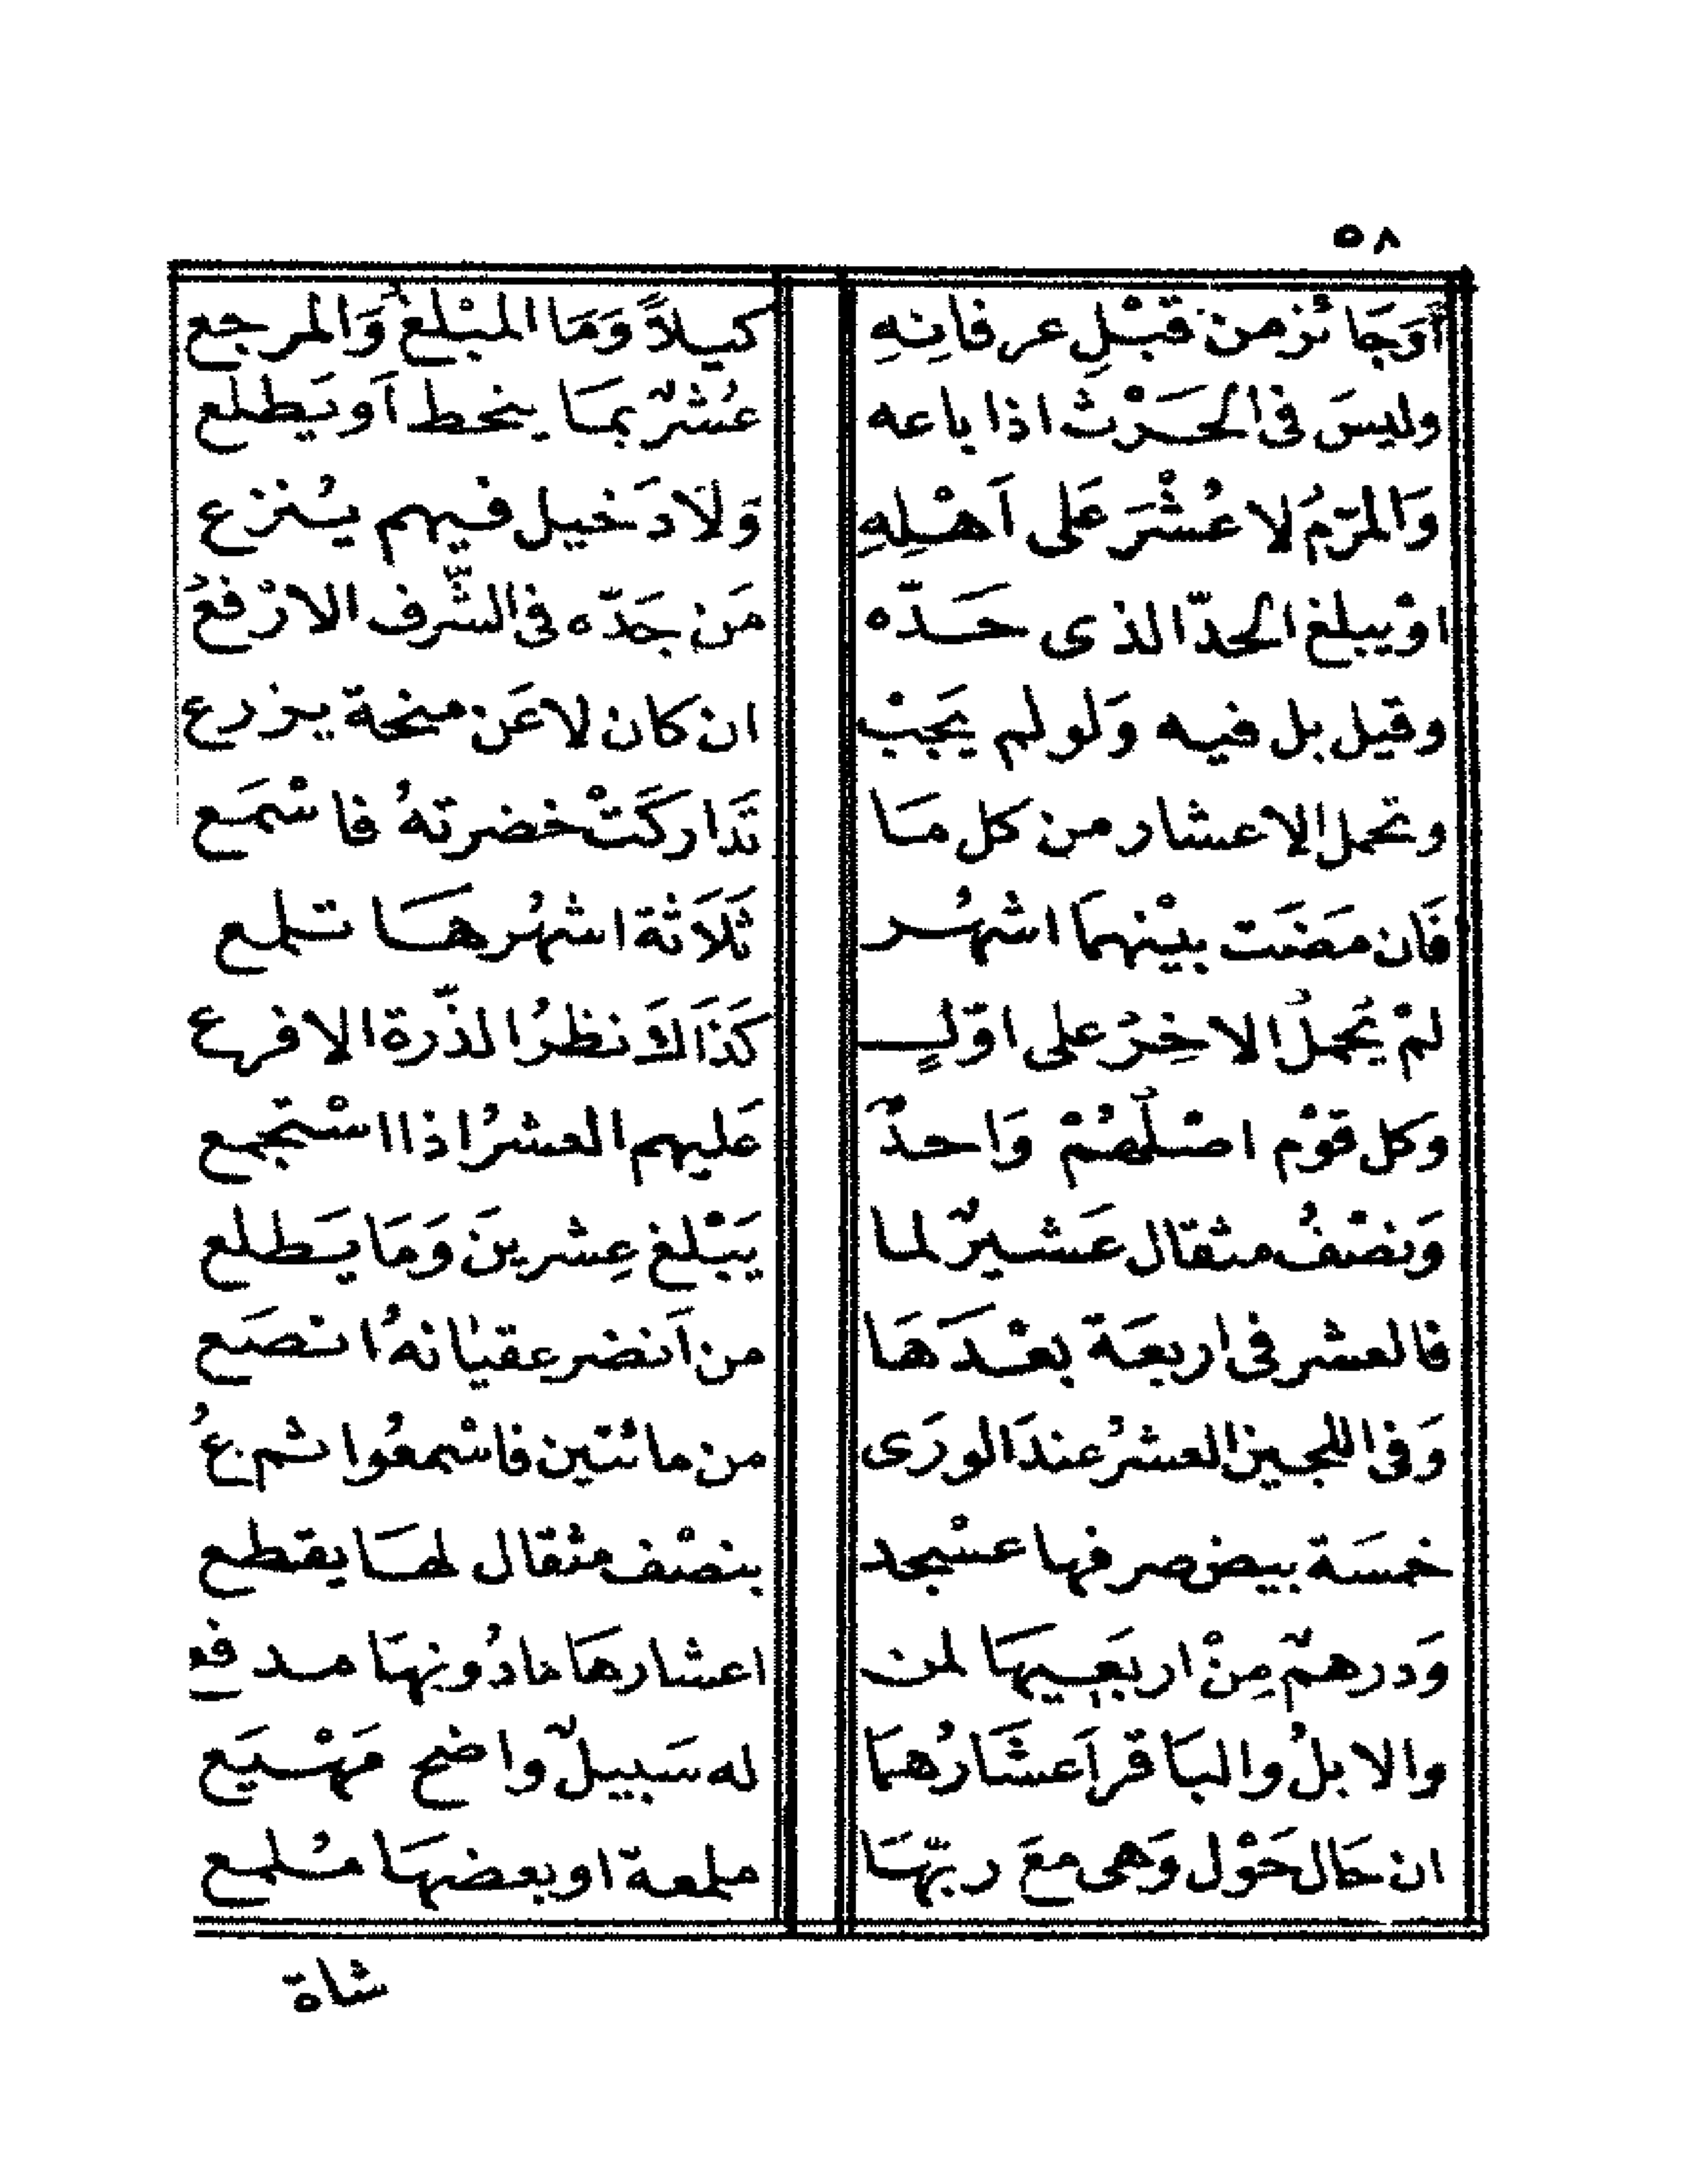 ٥٨
أَوَجَائز من قبْلِ عرفانِهِ كيلاً وَمَا المبْلغُ وَالمرجع
وليسَ فى الحَرْث اذا باعه عُشْرٌ بمَا ينحط اَو يَطلع
وَالمرّمُ لا عُشْرَ عَلى اَهْلِهِ وَلَا دَخيل فيهم يُنزع
اوْ يبلغ الحدّ الذى حَدّه مَن جَدّه فى الشّرف الارْفعُ
وقيل بل فيه وَلو لم يَجبْ ان كان لا عَن منحة يزرع
وتحمل الاعشار من كل مَا تَدَاركَتْ خضرتهُ فاسْمَع
فَان مَضَت بيْنهما اشهُر ثَلَاثة اشهُرهَا تلمع
لمْ يَحملُ الاخِرُ على اوّلٍ كَذَالكَ نظرُ الذّرة الافرع
وكل قوْم اصْلُهُمْ وَاحدٌ عَليهم العشرُ اذا اسْتجمع
وَنصْفُ مثقال عَشيرٌ لما يَبْلغ عِشرينَ وَمَا يَطلع
فالعشر فى اربعَة بعْدَهَا من اَنضر عقيانهُ انصَع
وَفى اللجين العشرُ عندَ الورَى من مائتين فاسْمعُوا ثم عُ
خمسَة بيض صرفها عسْجد بنصْف مثقال لهَا يقطع
وَدرهمٌ مِنْ اربَعِيهَا لمن اعشارهَا مادُونِهَا مدفع
والابلُ والبَاقر اَعشَارُهمَا له سَبيلٌ واضح مَهْيَع
ان حَال حَوْل وَهى معَ ربّهَا ملمعة او بعضهَا مُلمع
شاة